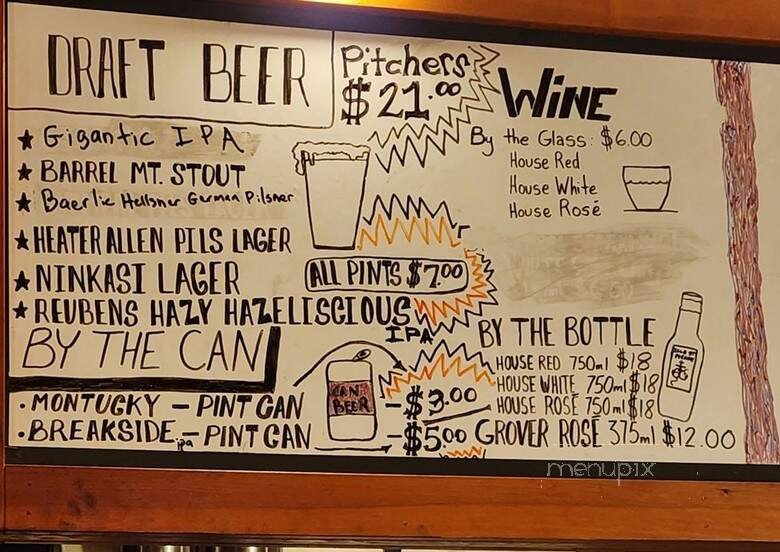 DRAFT BEER
Pitchers
$21.00
★ Gigantic IPA
★ BARREL MT. STOUT
★ Baerlic Hellsner German Pilsner
★ HEATER ALLEN PILS LAGER
★ NINKASI LAGER
★ REUBENS HAZY HAZELISCIOUS
IPA
ALL PINTS $7.00
BY THE CAN
• MONTUCKY - PINT CAN - $3.00
• BREAKSIDE ipa - PINT CAN - $5.00
CAN
BEER
WINE
By the Glass: $6.00
House Red
House White
House Rosé
BY THE BOTTLE
HOUSE RED 750ml $18
HOUSE WHITE 750ml $18
HOUSE ROSE 750ml $18
GROVER ROSÉ 375ml $12.00
menupix